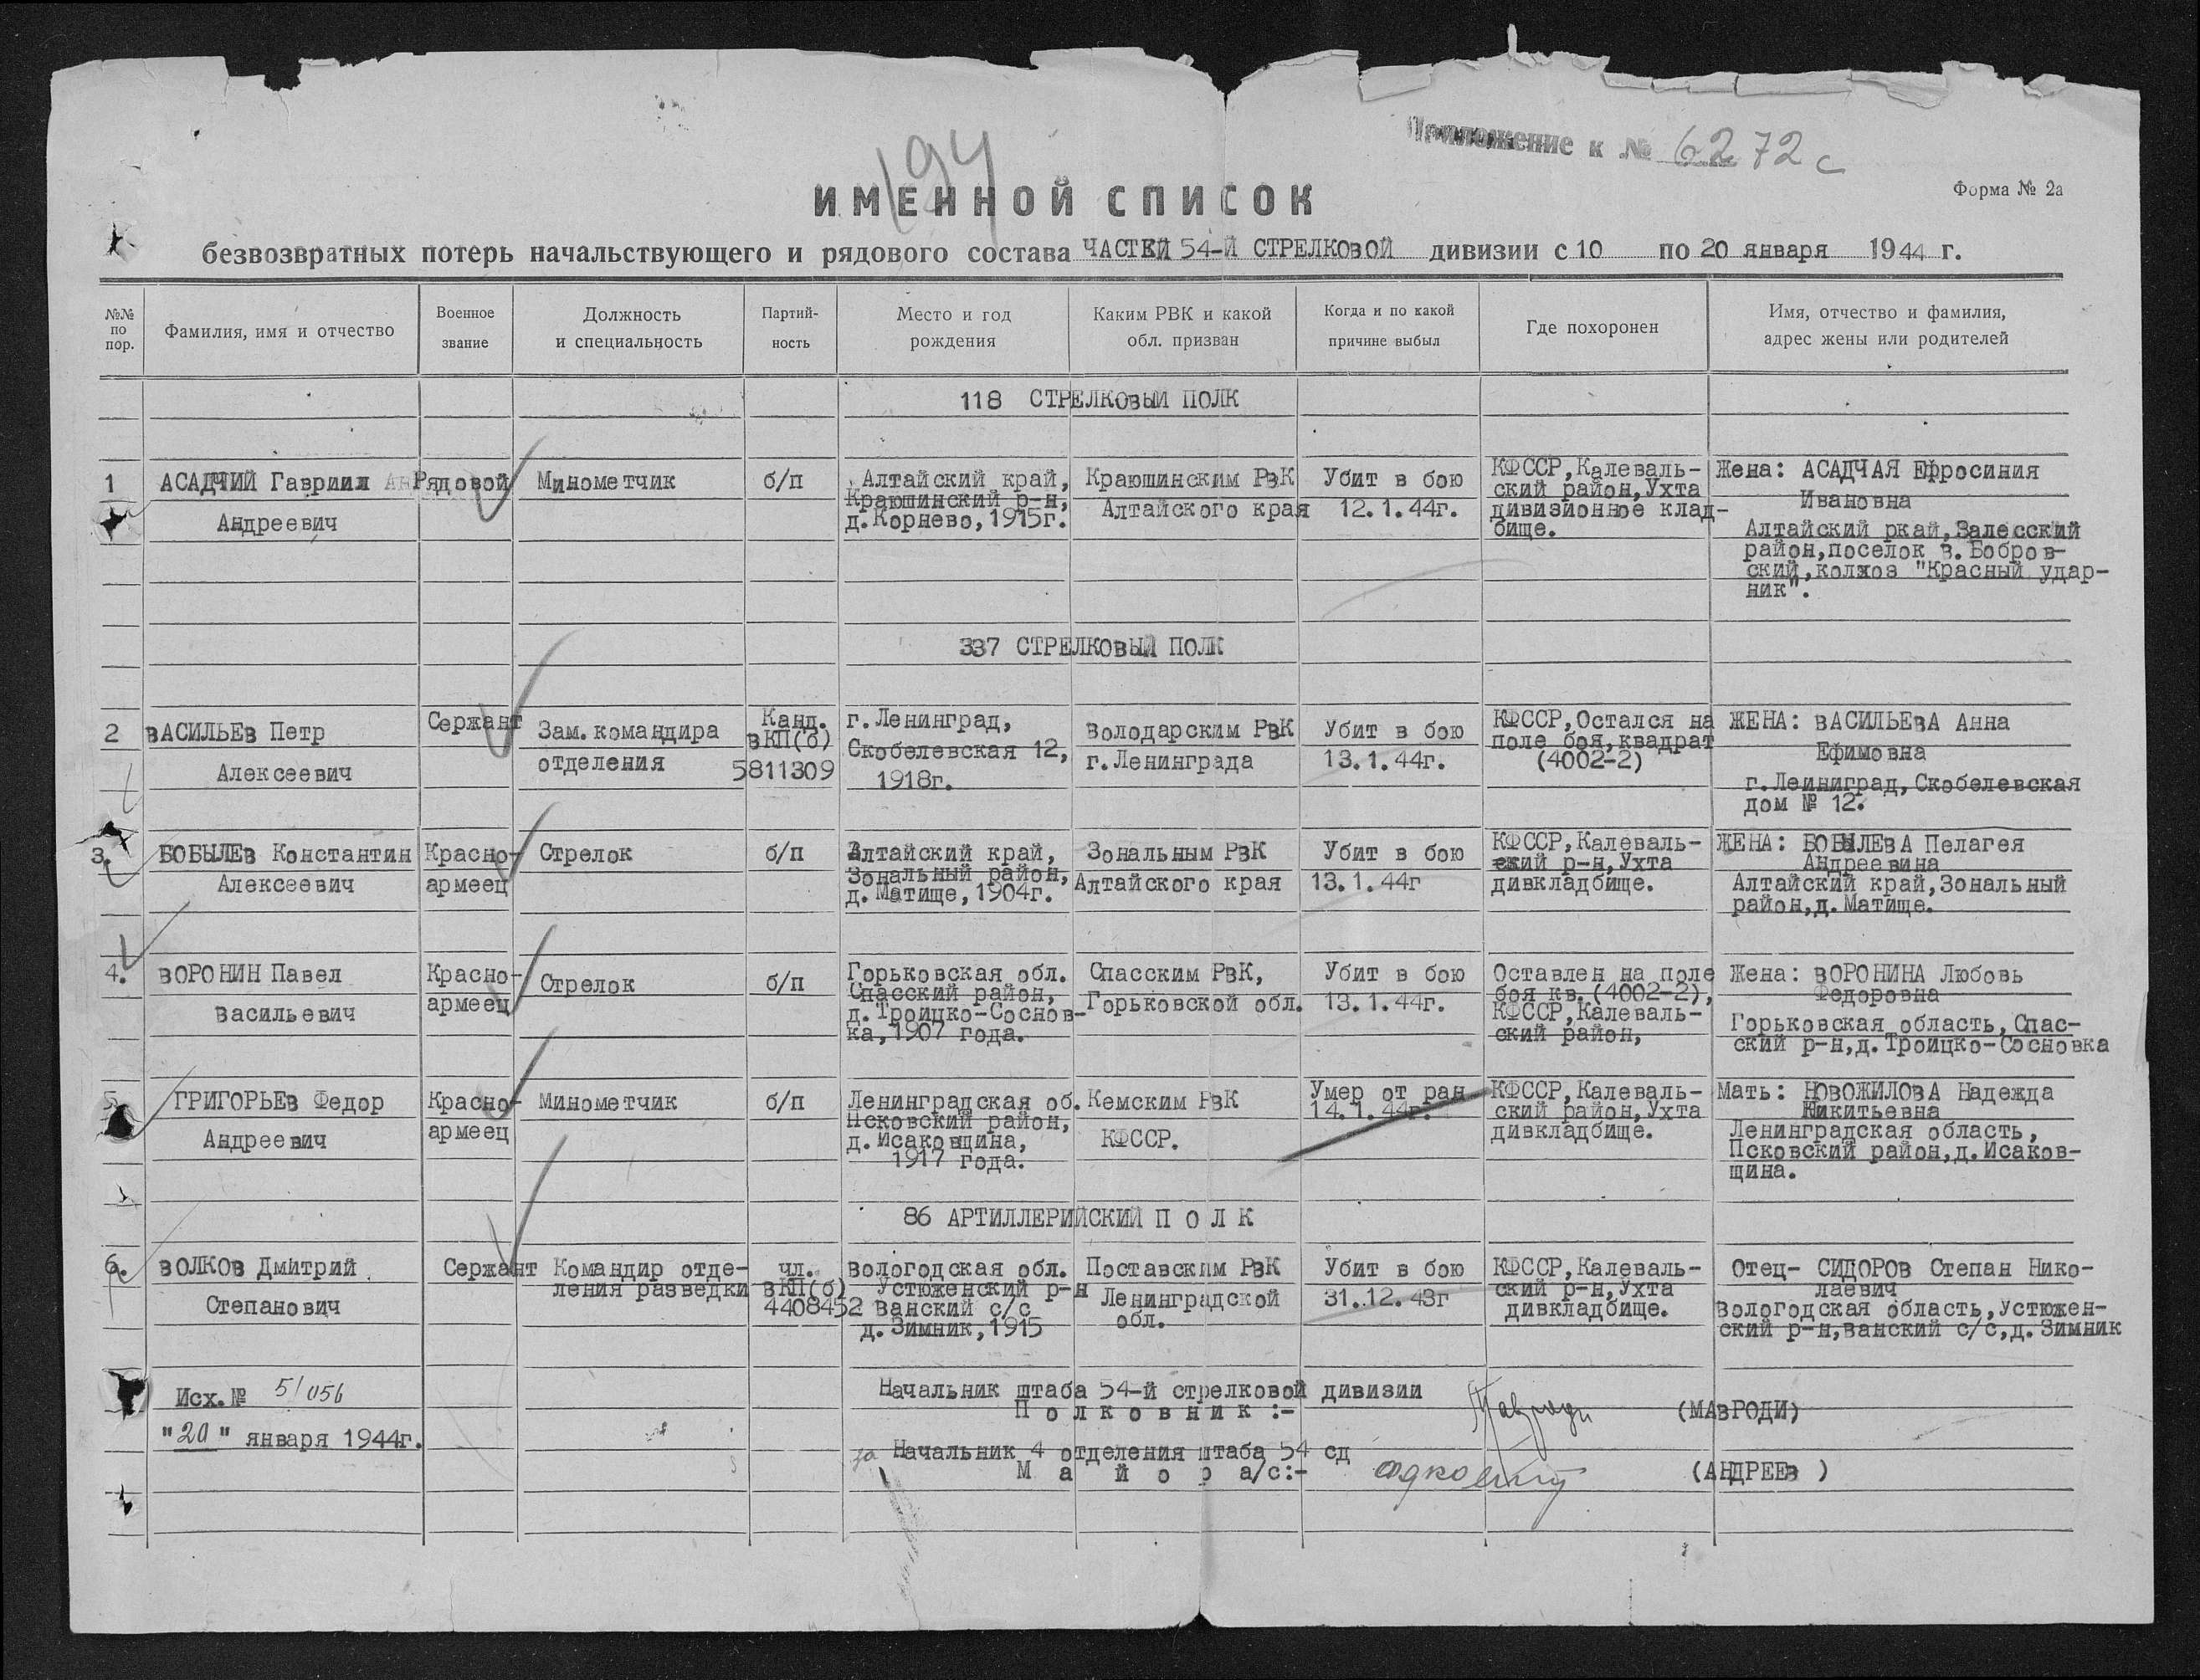 Приложение к № 6272с
194
ИМЕННОЙ СПИСОК
Форма № 2а
безвозвратных потерь начальствующего и рядового состава ЧАСТЕЙ 54-Й СТРЕЛКОВОЙ дивизии с 10 по 20 января 1944 г.
№№ по пор.
Фамилия, имя и отчество
Военное звание
Должность и специальность
Партий-ность
Место и год рождения
Каким РВК и какой обл. призван
Когда и по какой причине выбыл
Где похоронен
Имя, отчество и фамилия, адрес жены или родителей
118 СТРЕЛКОВЫЙ ПОЛК
1
АСАДЧИЙ Гавриил
Андреевич
Рядовой
Минометчик
б/п
Алтайский край,
Краюшинский р-н,
д.Корнево,1915г.
Краюшинским РВК
Алтайского края
Убит в бою
12.1.44г.
КФССР,Калеваль-
ский район,Ухта
дивизионное клад-
бище.
Жена: АСАДЧАЯ Ефросиния
Ивановна
Алтайский ркай,Залесский
район,поселок в.Бобров-
ский,колхоз "Красный удар-
ник".
337 СТРЕЛКОВЫЙ ПОЛК
2
ВАСИЛЬЕВ Петр
Алексеевич
Сержант
Зам.командира
отделения
Канд.
ВКП(б)
5811309
г.Ленинград,
Скобелевская 12,
1918г.
Володарским РВК
г.Ленинграда
Убит в бою
13.1.44г.
КФССР,Остался на
поле боя,квадрат
(4002-2)
ЖЕНА: ВАСИЛЬЕВА Анна
Ефимовна
г.Леиниград,Скобелевская
дом № 12.
3.
БОБЫЛЕВ Константин
Алексеевич
Красно-
армеец
Стрелок
б/п
Алтайский край,
Зональный район,
д.Матище,1904г.
Зональным РВК
Алтайского края
Убит в бою
13.1.44г
КФССР,Калеваль-
ский р-н,Ухта
дивкладбище.
ЖЕНА: БОБЫЛЕВА Пелагея
Андреевина
Алтайский край,Зональный
район,д.Матище.
4.
ВОРОНИН Павел
Васильевич
Красно-
армеец
Стрелок
б/п
Горьковская обл.
Спасский район,
д.Троицко-Соснов-
ка,1907 года.
Спасским РВК,
Горьковской обл.
Убит в бою
13.1.44г.
Оставлен на поле
боя кв.(4002-2),
КФССР,Калеваль-
ский район,
Жена: ВОРОНИНА Любовь
Федоровна
Горьковская область,Спас-
ский р-н,д.Троицко-Сосновка
5
ГРИГОРЬЕВ Федор
Андреевич
Красно-
армеец
Минометчик
б/п
Ленинградская об.
Псковский район,
д.Исаковщина,
1917 года.
Кемским РВК
КФССР.
Умер от ран
14.1.44г.
КФССР,Калеваль-
ский район,Ухта
дивкладбище.
Мать: НОВОЖИЛОВА Надежда
Никитьевна
Ленинградская область,
Псковский район,д.Исаков-
щина.
86 АРТИЛЛЕРИЙСКИЙ П О Л К
6.
ВОЛКОВ Дмитрий
Степанович
Сержант
Командир отде-
ления разведки
чл.
ВКП(б)
4408452
Вологодская обл.
Устюженский р-н
Ванский с/с
д.Зимник,1915
Поставским РВК
Ленинградской
обл.
Убит в бою
31.12.43г
КФССР,Калеваль-
ский р-н,Ухта
дивкладбище.
Отец- СИДОРОВ Степан Нико-
лаевич
Вологодская область,Устюжен-
ский р-н,Ванский с/с,д.Зимник
Исх.№ 51056
"20" января 1944г.
Начальник штаба 54-й стрелковой дивизии
П о л к о в н и к :-
Мавроди
(МАВРОДИ)
за Начальник 4 отделения штаба 54 сд
М а й о р а/с:-
(АНДРЕЕВ )